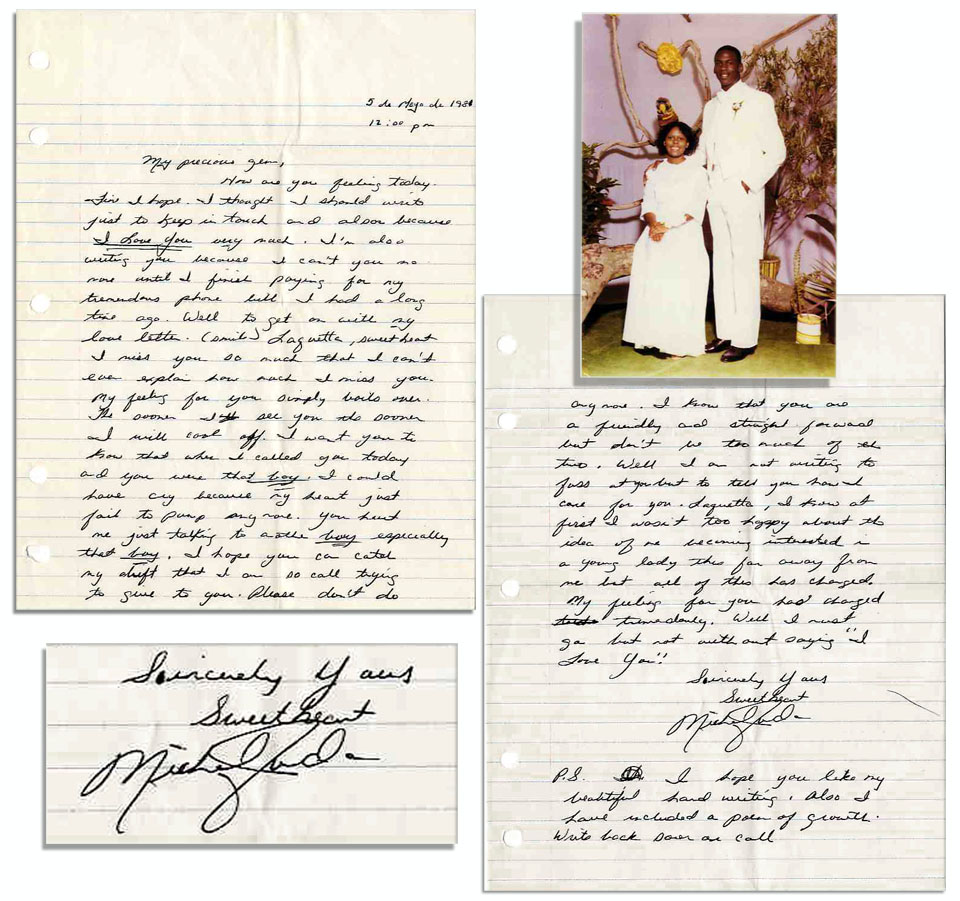 5 de Mayo de 1981
12:00 pm
My precious gem,
How are you feeling today.
Fin I hope. I thought I should write
just to keep in touch and also because
I Love You very much. I'm also
writing you because I can't you no
more until I finish paying for my
tremendous phone bill I had a long
time ago. Well to get on with my
love letter. (smile) Laquetta, sweetheart
I miss you so much that I can't
even explain how much I miss you.
My feeling for you simply boils over.
The sooner I see you the sooner
I will cool off. I want you to
know that when I called you today
and you were that boy. I could
have cry because my heart just
fail to pump anymore. You hurt
me just talking to another boy especially
that boy. I hope you can catch
my drift that I am so call trying
to give to you. Please don't do
anymore. I know that you are
a friendly and straight forward
but don't be too much of the
two. Well I am not writing to
fuss at you but to tell you how I
care for you. Laquetta, I know at
first I wasn't too happy about the
idea of me becoming interested in
a young lady this far away from
me but all of this has changed.
My feeling for you has changed
tremedously. Well I must
go but not without saying "I
Love You".
Sincerely Yours
Sweetheart
Michael Jordan
P.S. I hope you like my
beautiful hand writing. Also I
have included a poem of growth.
Write back soon or call
Sincerely Yours
Sweetheart
Michael Jordan